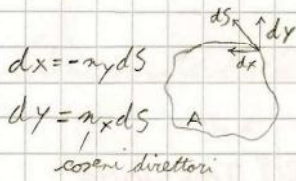 dx = -nydS
dy = nxdS
coseni direttori
dS
dy
dx
A